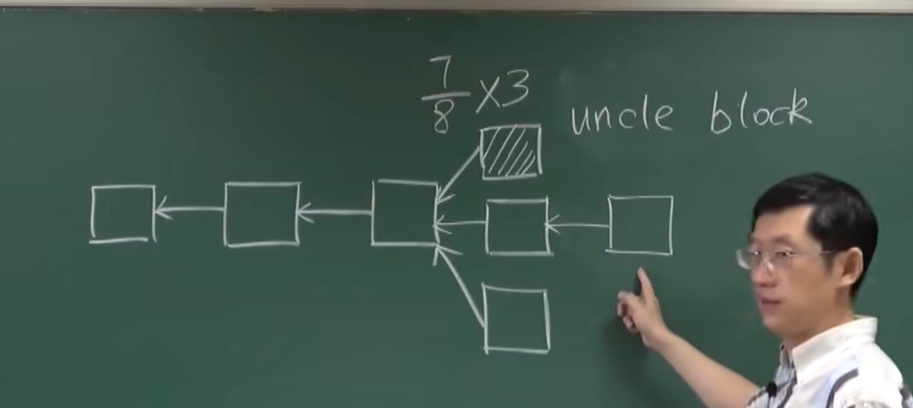 7/8 ×3
uncle block